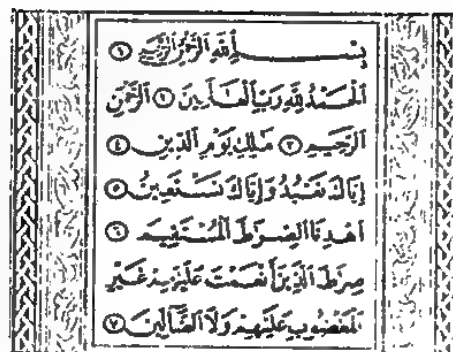 بِسْمِ اللَّهِ الرَّحْمَٰنِ الرَّحِيمِ ۝١
الْحَمْدُ لِلَّهِ رَبِّ الْعَالَمِينَ ۝٢ الرَّحْمَٰنِ
الرَّحِيمِ ۝٣ مَلِكِ يَوْمِ الدِّينِ ۝٤
إِيَّاكَ نَعْبُدُ وَإِيَّاكَ نَسْتَعِينُ ۝٥
اهْدِنَا الصِّرَطَ الْمُسْتَقِيمَ ۝٦
صِرَطَ الَّذِينَ أَنْعَمْتَ عَلَيْهِمْ غَيْرِ
الْمَغْضُوبِ عَلَيْهِمْ وَلَا الضَّالِّينَ ۝٧